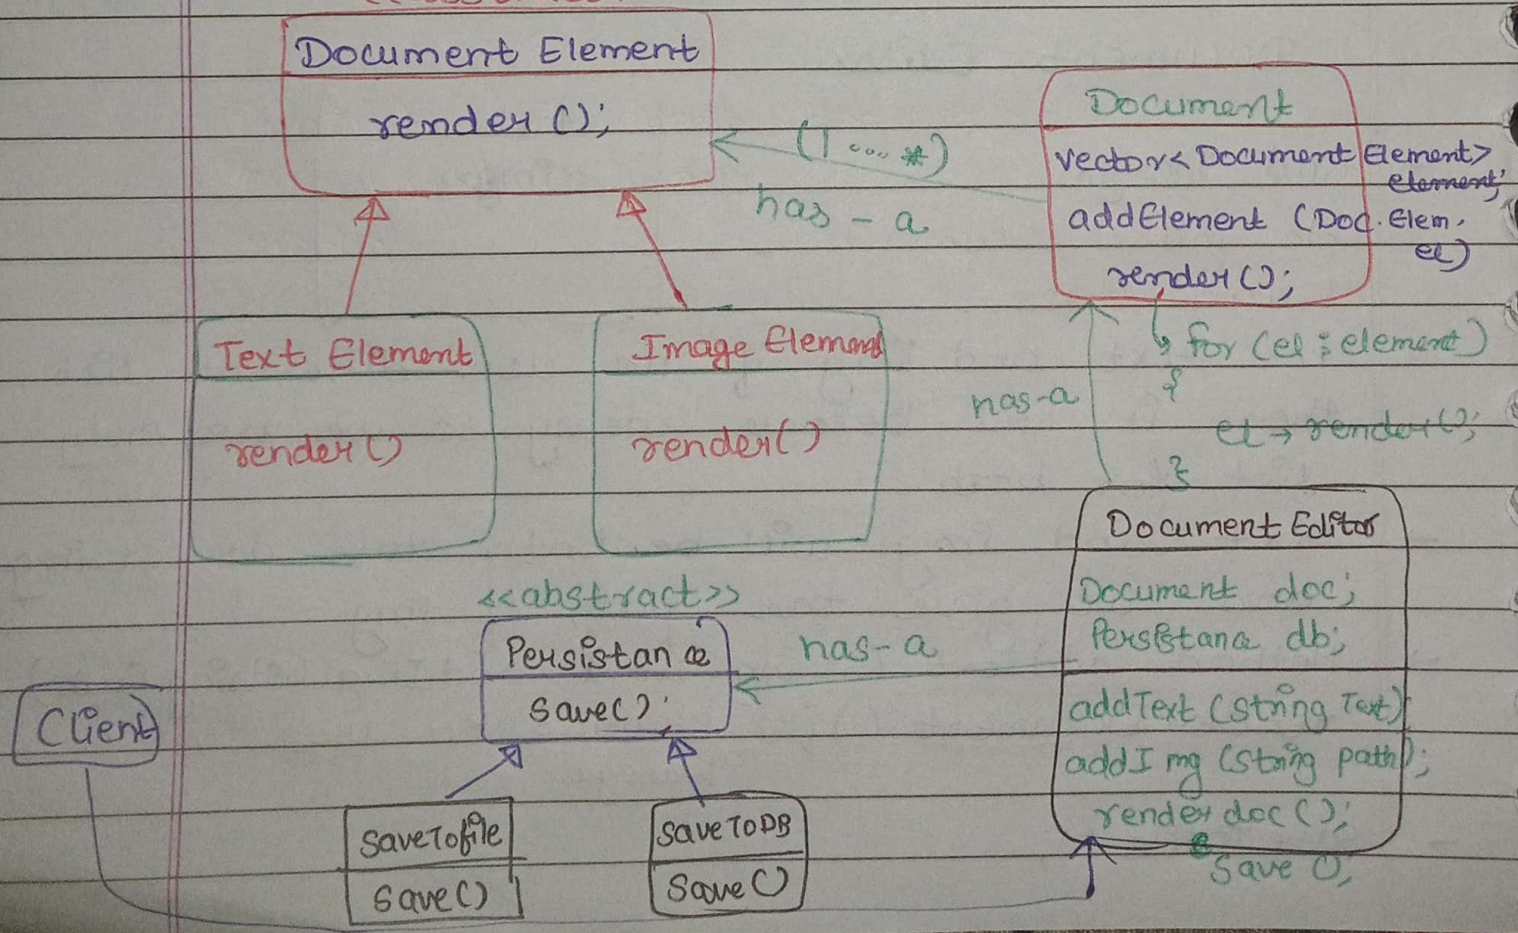 Document Element
render();
Document
vector<Document Element>
element;
addElement (Doc. Elem.
el)
render();
(1 .... *)
has - a
Text Element
render()
Image Element
render()
for (el : element)
{
el → render();
}
has-a
Document Editor
Document doc;
Persistance db;
addText (string Text)
addImg (string path);
render doc();
Save();
<<abstract>>
Persistance
save();
has-a
Client
SaveTofile
save()
SaveToDB
save()